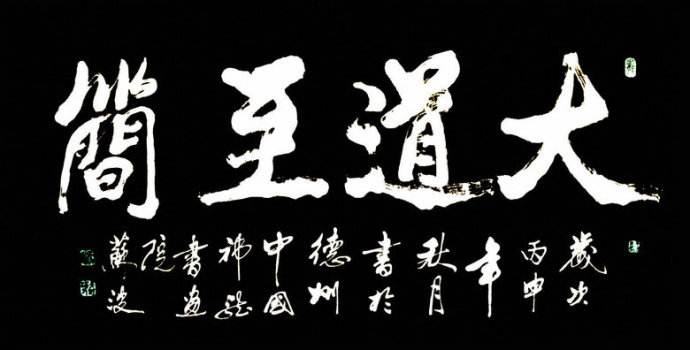 大道至簡
歲次
丙申
年
秋月
書於
德州
中國
神龍
書画
院
蘇波